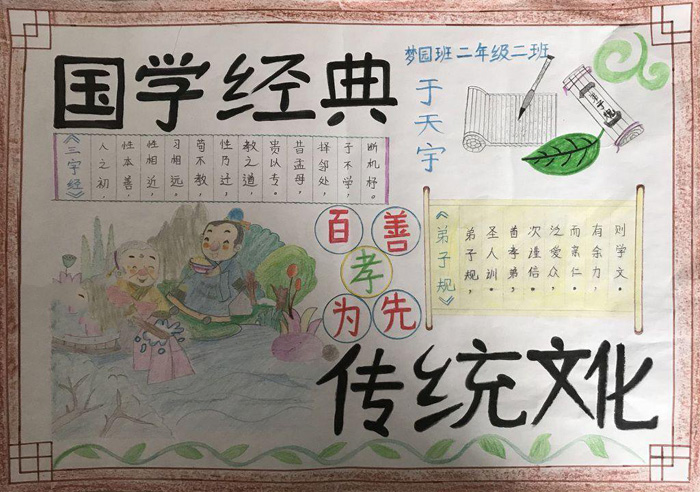 国学经典
梦园班二年级二班
于天宇
《三字经》
人之初，
性本善。
性相近，
习相远。
苟不教，
性乃迁。
教之道，
贵以专。
昔孟母，
择邻处。
子不学，
断机杼。
百善
孝
为先
《弟子规》
弟子规，
圣人训。
首孝弟，
次谨信。
泛爱众，
而亲仁。
有余力，
则学文。
传统文化